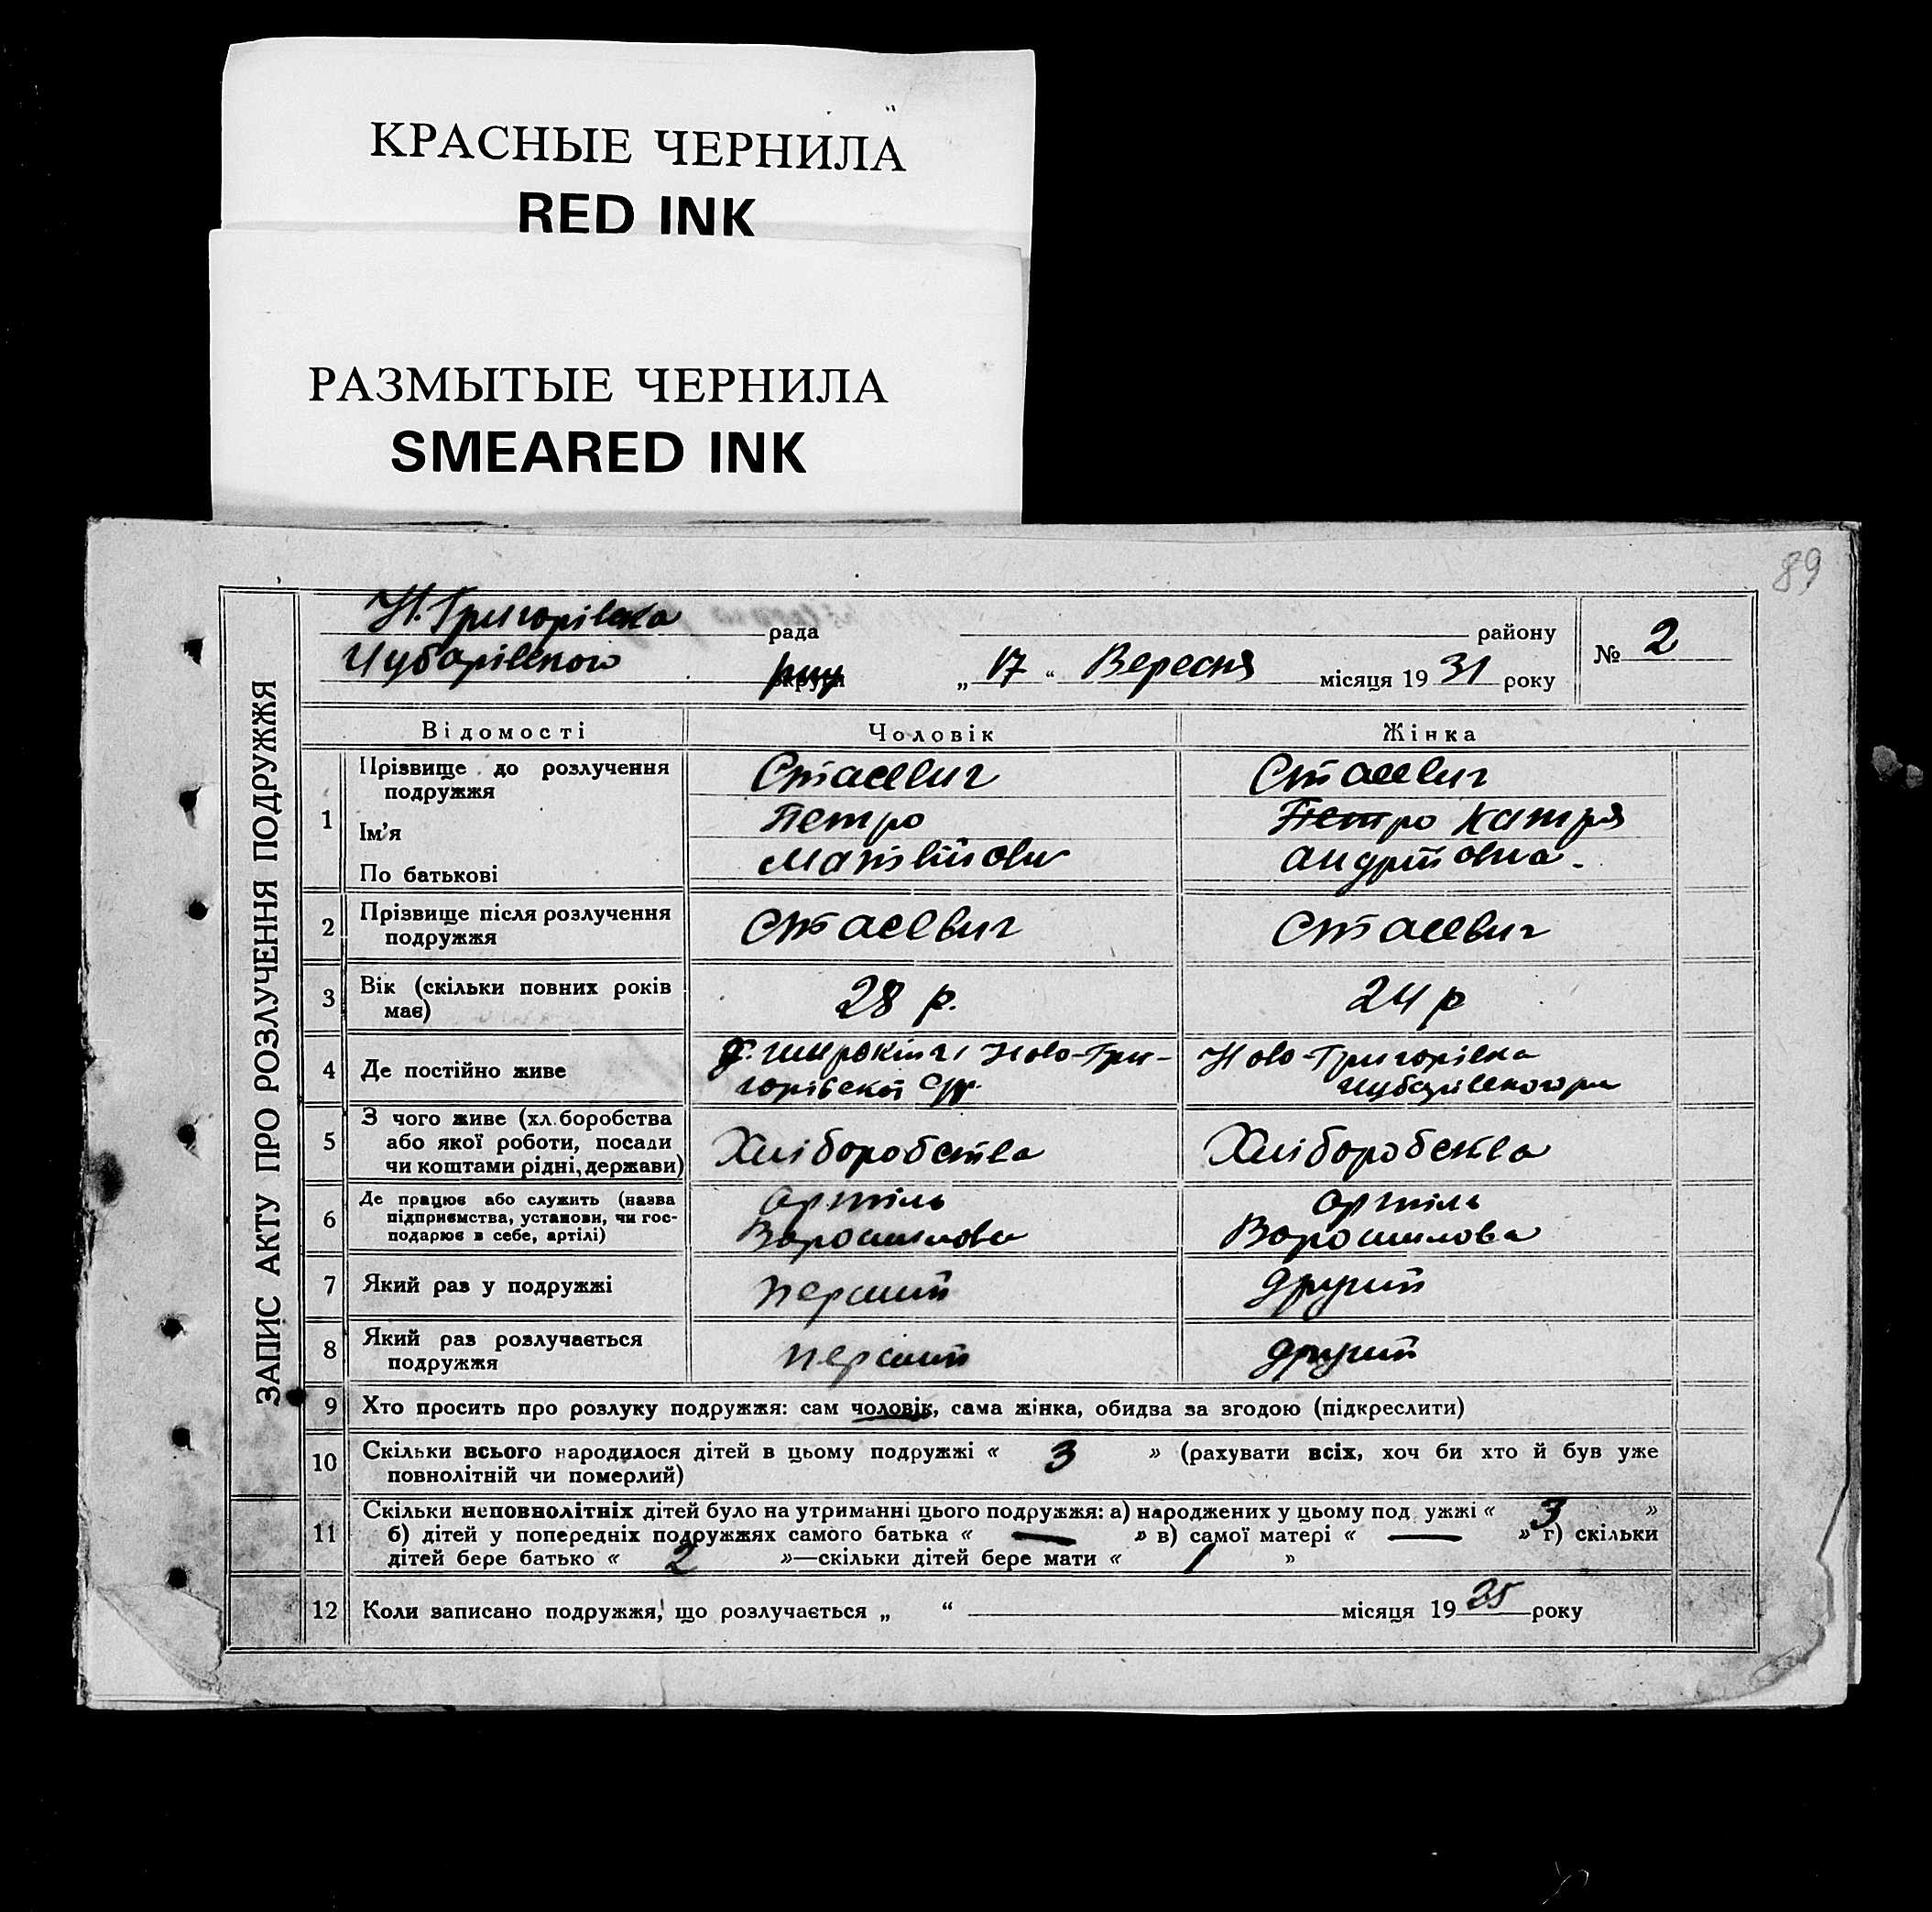 КРАСНЫЕ ЧЕРНИЛА
RED INK
РАЗМЫТЫЕ ЧЕРНИЛА
SMEARED INK
89
ЗАПИС АКТУ ПРО РОЗЛУЧЕННЯ ПОДРУЖЖЯ
Н. Григорівка рада району
Чубарівського округи „ 17 “ Вересня місяця 19 31 року
№ 2
Відомості Чоловік Жінка
1
Прізвище до розлучення подружжя Стасевич Стасевич
Ім'я Петро Петро Катря
По батькові Матвійови Андрійовна
2 Прізвище після розлучення
подружжя Стасевич Стасевич
3 Вік (скільки повних років
має) 28 р. 24 р
4 Де постійно живе
Ново-Гри-
горівської Ср.
Ново-Григорівка
Чубарівського р
5 З чого живе (хл.боробства
або якої роботи, посади
чи коштами рідні, держави) Хліборобства Хліборобства
6 Де працює або служить (назва
підприємства, установи, чи гос-
подарює в себе, артілі)
Артіль
Ворошилова
Артіль
Ворошилова
7 Який раз у подружжі перший другий
8 Який раз розлучається
подружжя перший другий
9 Хто просить про розлуку подружжя: сам чоловік, сама жінка, обидва за згодою (підкреслити)
10 Скільки всього народилося дітей в цьому подружжі « 3 » (рахувати всіх, хоч би хто й був уже
повнолітній чи померлий)
11 Скільки неповнолітніх дітей було на утриманні цього подружжя: а) народжених у цьому под ужжі « 3 »
б) дітей у попередніх подружжях самого батька « — » в) самої матері « — » г) скільки
дітей бере батько « 2 »—скільки дітей бере мати « 1 »
12 Коли записано подружжя, що розлучається „ “ місяця 19 25 року